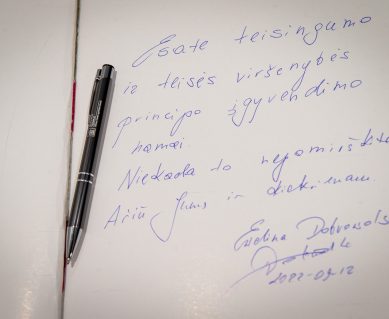 Esate teisingumo
ir teisės viršenybės
principo įgyvendimo
namai.
Niekada to nepamirškite
Ačiū Jums ir
Evelina
2022-09-12